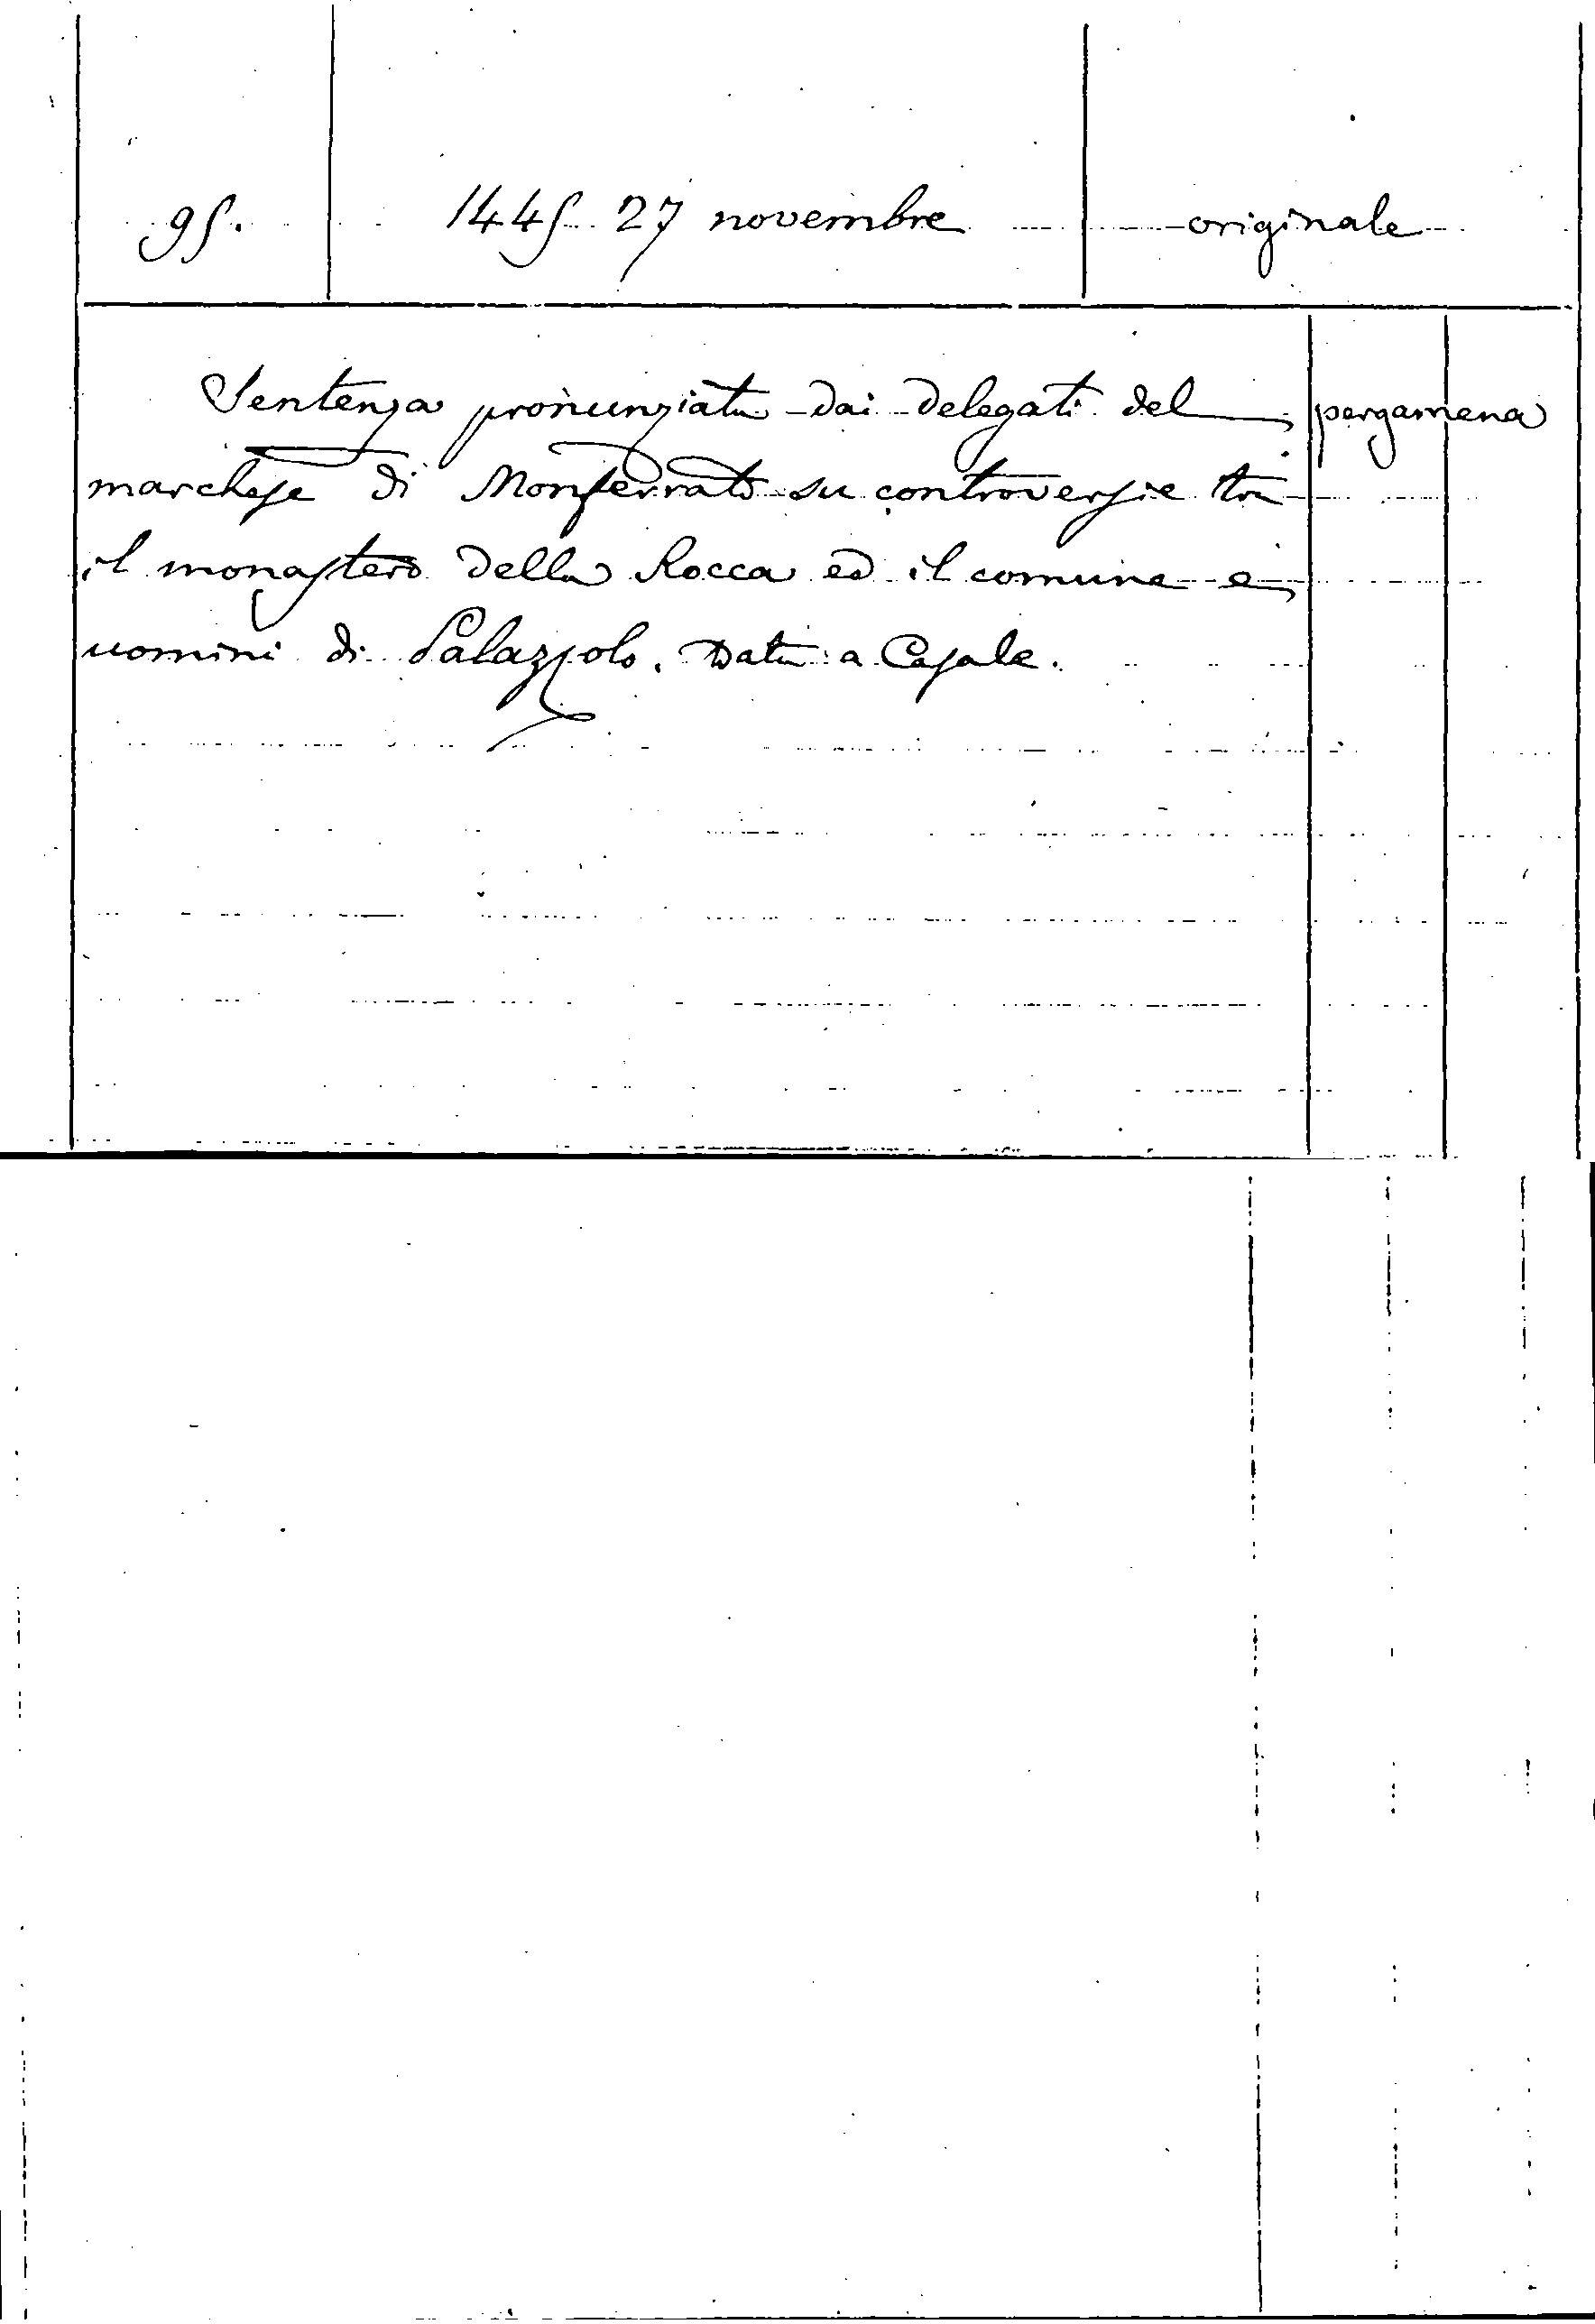 95. 1445 27 novembre originale
Sentenza pronunziata dai delegati del pergamena
marchese di Monferrato su controversie tra
il monastero della Rocca ed il comune e
uomini di Palazzolo. Data a Casale.